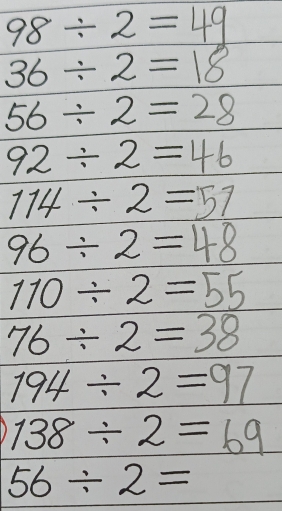 98 ÷ 2 = 49
36 ÷ 2 = 18
56 ÷ 2 = 28
92 ÷ 2 = 46
114 ÷ 2 = 57
96 ÷ 2 = 48
110 ÷ 2 = 55
76 ÷ 2 = 38
194 ÷ 2 = 97
138 ÷ 2 = 69
56 ÷ 2 =